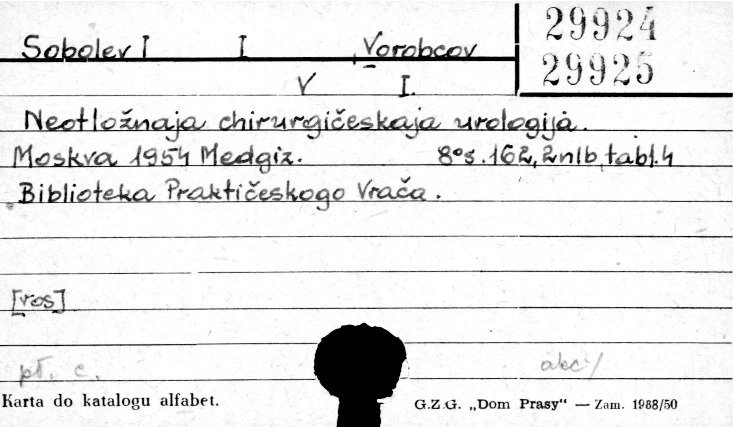 29924
Sobolev I I Vorobcov
29925
V I.
Neotložnaja chirurgičeskaja urologija.
Moskva 1954 Medgiz. 8° s. 162, 2nlb, tabl. 4
Biblioteka Praktičeskogo Vrača.
[ros]
pł. c.
Karta do katalogu alfabet.
G.Z.G. „Dom Prasy" — Zam. 1988/50